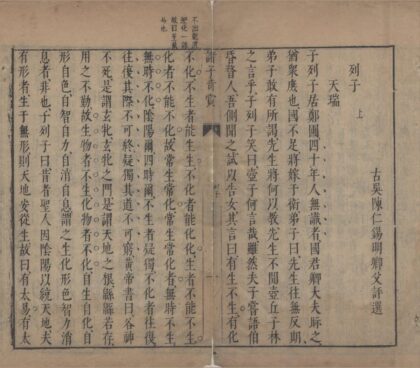 古吳陳仁錫明卿父評選
列子 上
天瑞
子列子居鄭圃四十年人無識者國君卿大夫眎之
猶眾庶也國不足將嫁于衛弟子曰先生往無反期
弟子敢有所謁先生將何以教先生不聞壺丘子林
之言乎子列子笑曰壺子何言哉雖然夫子嘗語伯
昏瞀人吾側聞之試以告女其言曰有生不生有化
諸子奇賞
不化不生者能生生不化者能化化生者不能不生
化者不能不化故常生常化常生常化者無時不生
無時不化陰陽爾四時爾不生者疑獨不化者往復
往復其際不可終疑獨其道不可窮黃帝書曰谷神
不死是謂玄牝玄牝之門是謂天地之根綿綿若存
用之不勤故生物者不生化物者不化自生自化自
形自色自智自力自消自息謂之生化形色智力消
息者非也子列子曰昔者聖人因陰陽以統天地夫
有形者生于無形則天地安從生故曰有太易有太